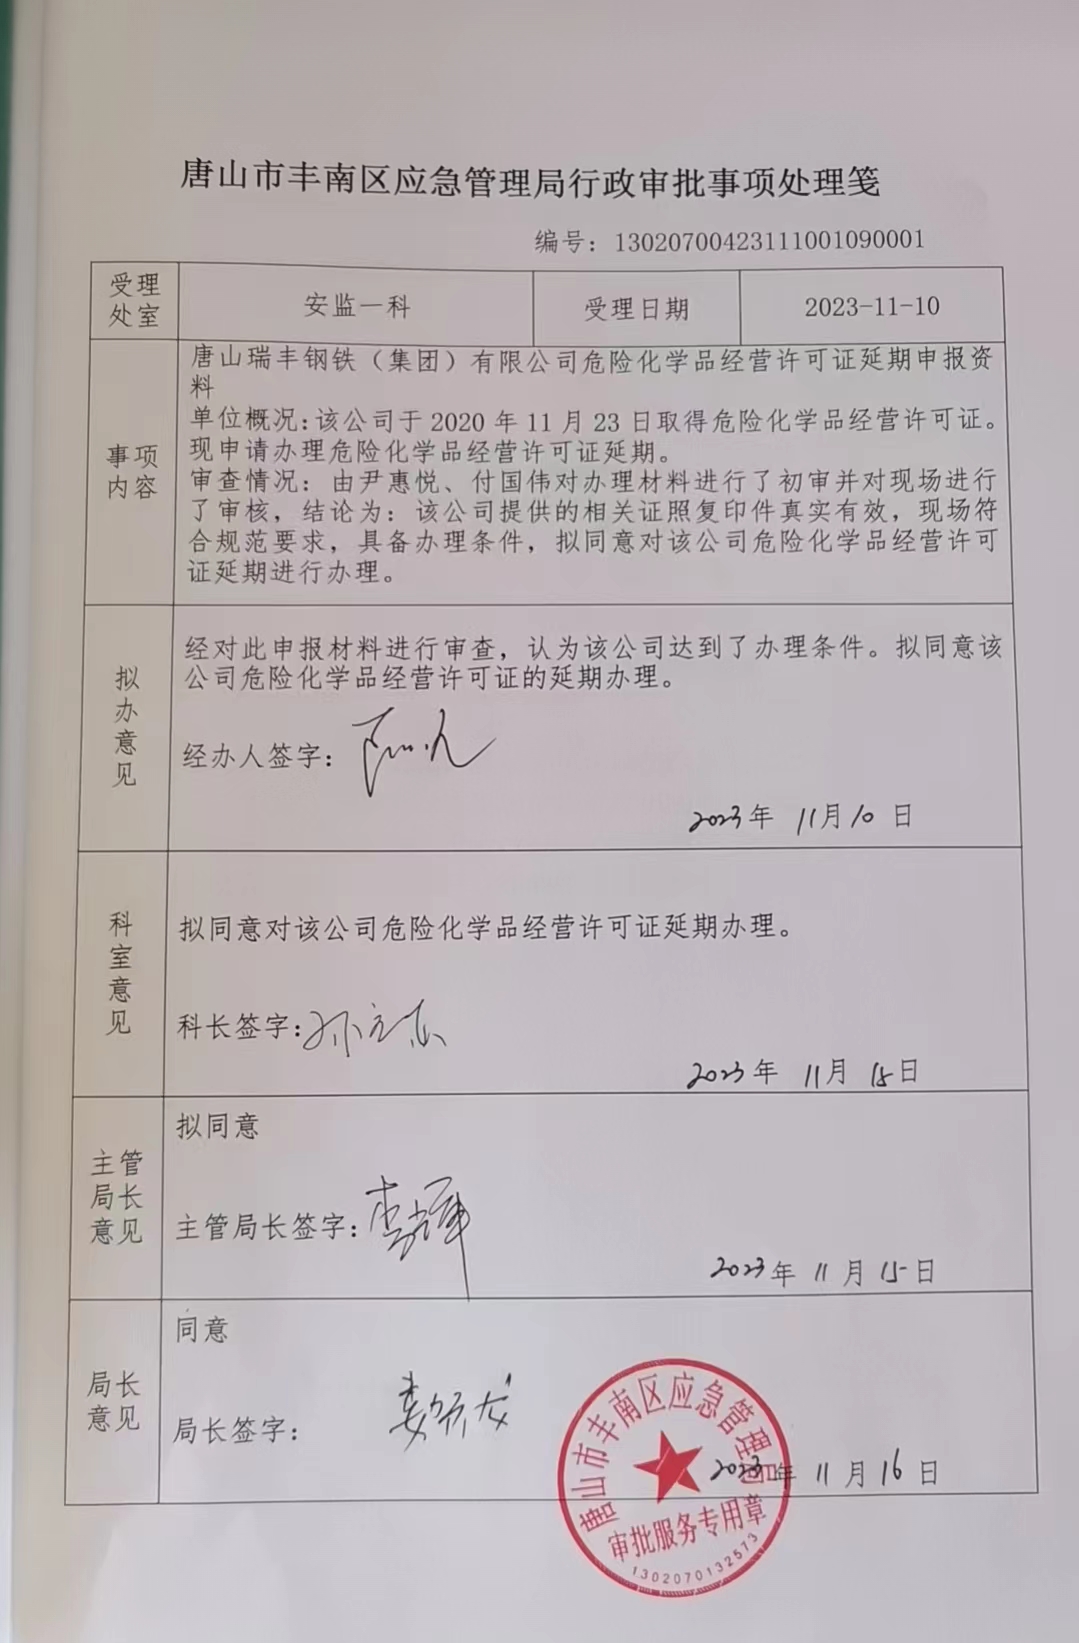 唐山市丰南区应急管理局行政审批事项处理笺
编号：13020700423111001090001
受理处室
安监一科
受理日期
2023-11-10
事项内容
唐山瑞丰钢铁（集团）有限公司危险化学品经营许可证延期申报资
料
单位概况：该公司于2020年11月23日取得危险化学品经营许可证。
现申请办理危险化学品经营许可证延期。
审查情况：由尹惠悦、付国伟对办理材料进行了初审并对现场进行
了审核，结论为：该公司提供的相关证照复印件真实有效，现场符
合规范要求，具备办理条件，拟同意对该公司危险化学品经营许可
证延期进行办理。
拟办意见
经对此申报材料进行审查，认为该公司达到了办理条件。拟同意该
公司危险化学品经营许可证的延期办理。
经办人签字：
2023年 11月10日
科室意见
拟同意对该公司危险化学品经营许可证延期办理。
科长签字：
2023年 11月 15日
主管局长意见
拟同意
主管局长签字：
2023年 11月 15日
局长意见
同意
局长签字：
2023年 11月16日
唐山市丰南区应急管理局
审批服务专用章
1302070132573